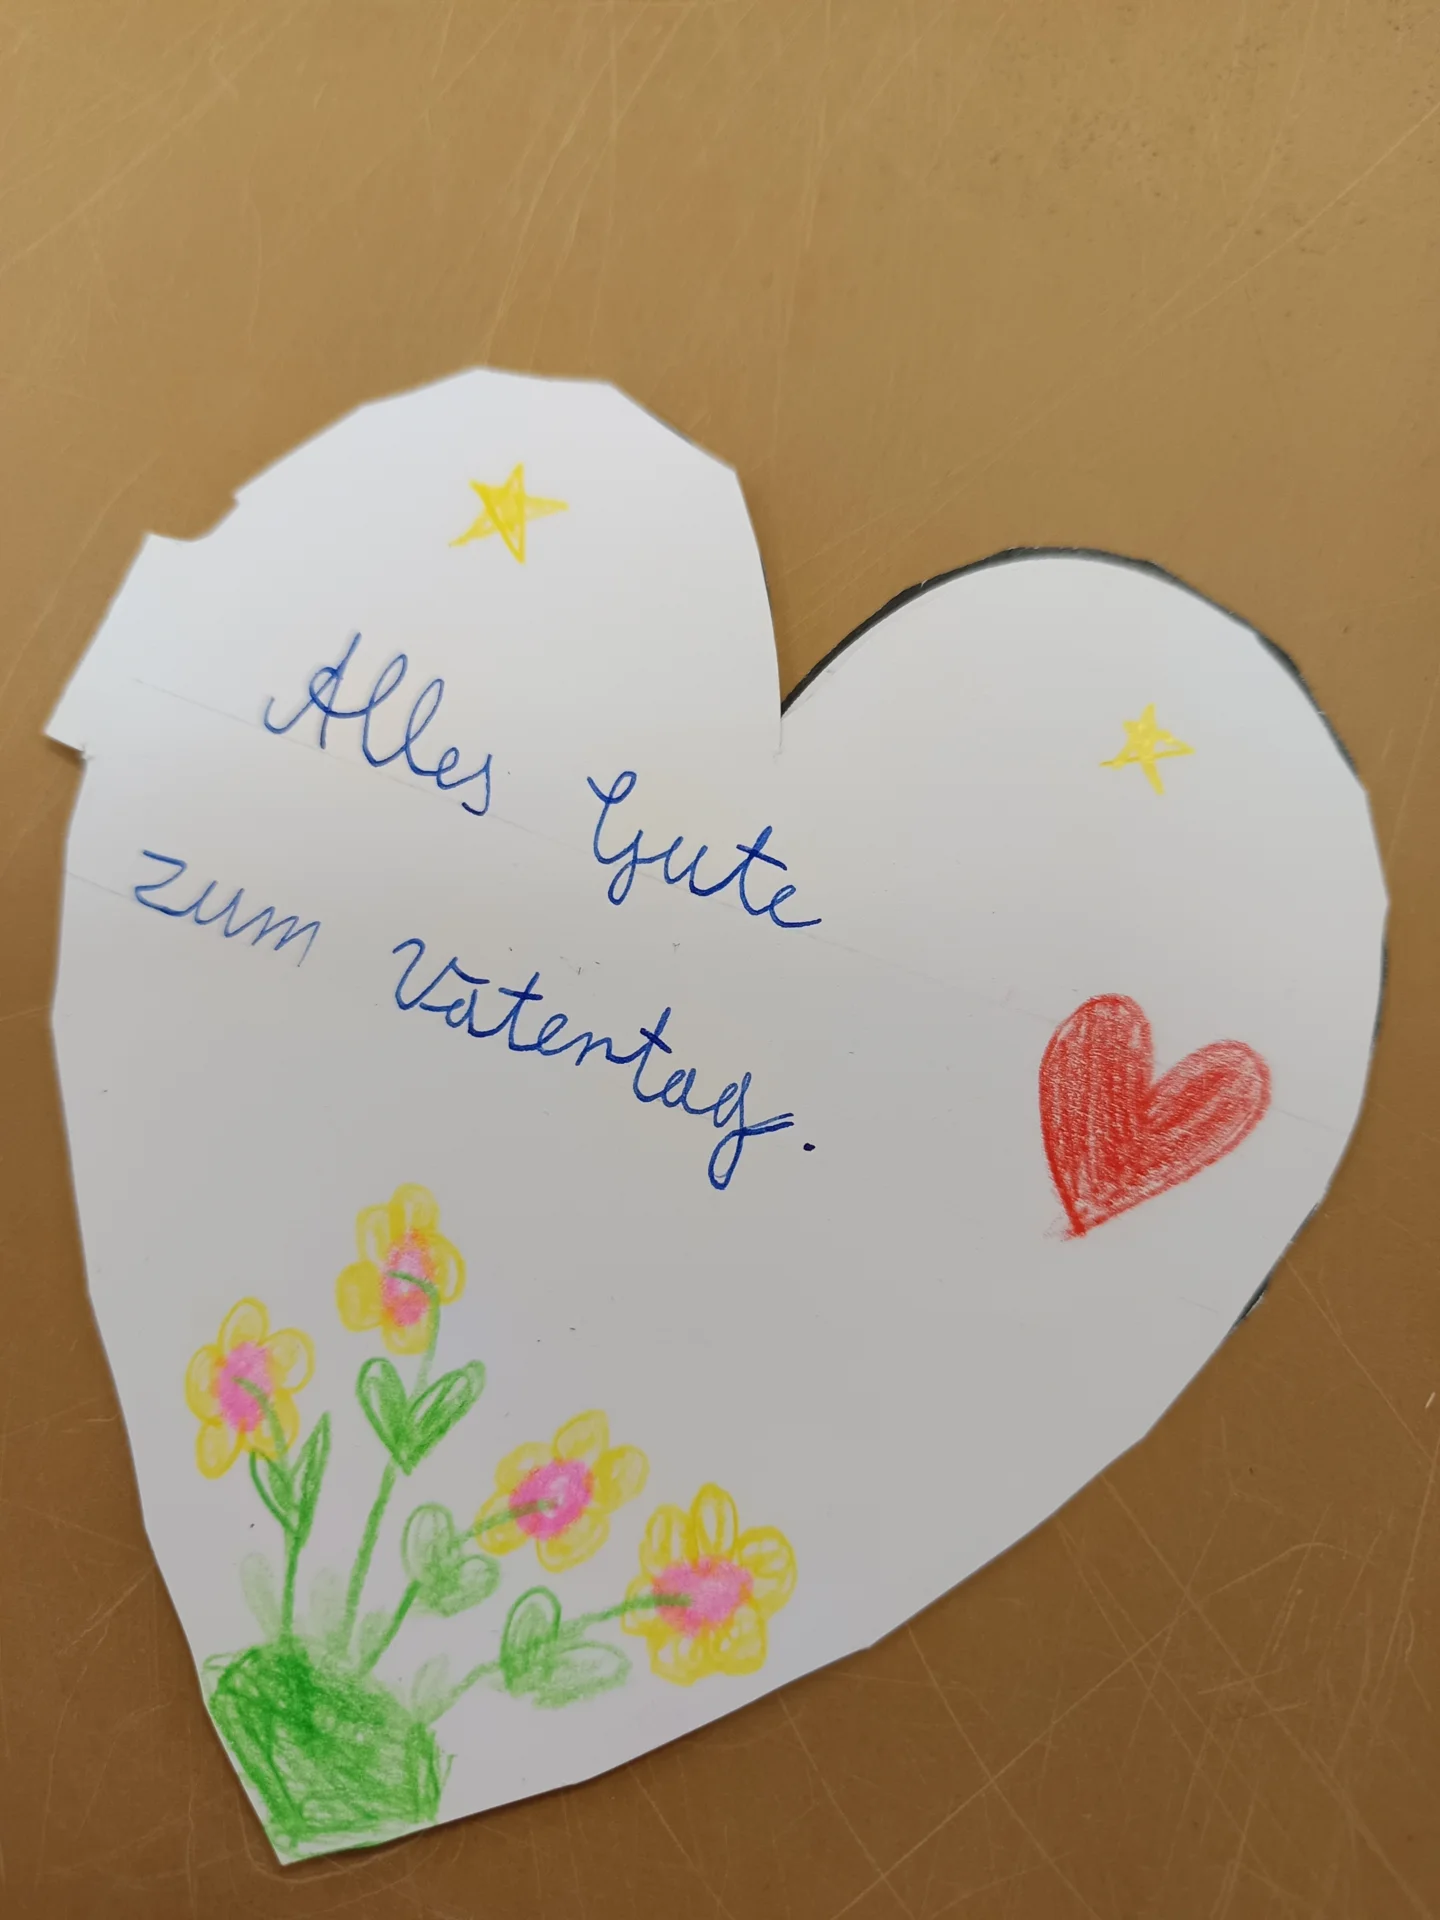 Alles Gute
zum Vatentag.